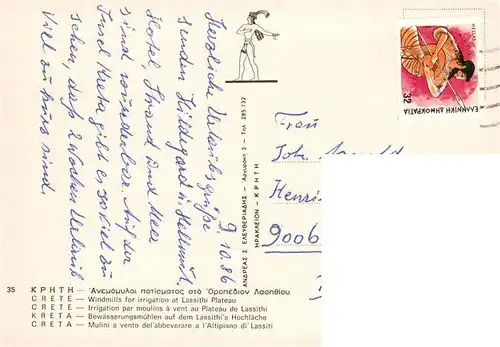 9.10.86
Herzliche Urlaubsgrüße
senden Hildegard u. Hellmut.
Hotel, Strand und Meer
sind wunderbar. Auf der
Insel Kreta gibt es so viel zu
sehen, daß 2 Wochen Urlaub
viel zu kurz sind.
ΑΝΔΡΕΑΣ Σ ΕΛΕΥΘΕΡΙΑΔΗΣ - Αρχιμήδη 3 - Τηλ. 285-732
ΗΡΑΚΛΕΙΟΝ - ΚΡΗΤΗ
ΕΛΛΗΝΙΚΗ ΔΗΜΟΚΡΑΤΙΑ
32
Frau
Joh.
Henri
9006
35 ΚΡΗΤΗ — Ἀνεμόμυλοι ποτίσματος στό Ὀροπέδιον Λασηθίου
CRETE — Windmills for irrigation at Lassithi Plateau
CRETE — Irrigation par moulins à vent au Plateau de Lassithi
KRETA — Bewässerungsmühlen auf dem Lassithi's Hochläche
CRETA — Mulini a vento del'abbeverare a l'Altipiano di Lassiti